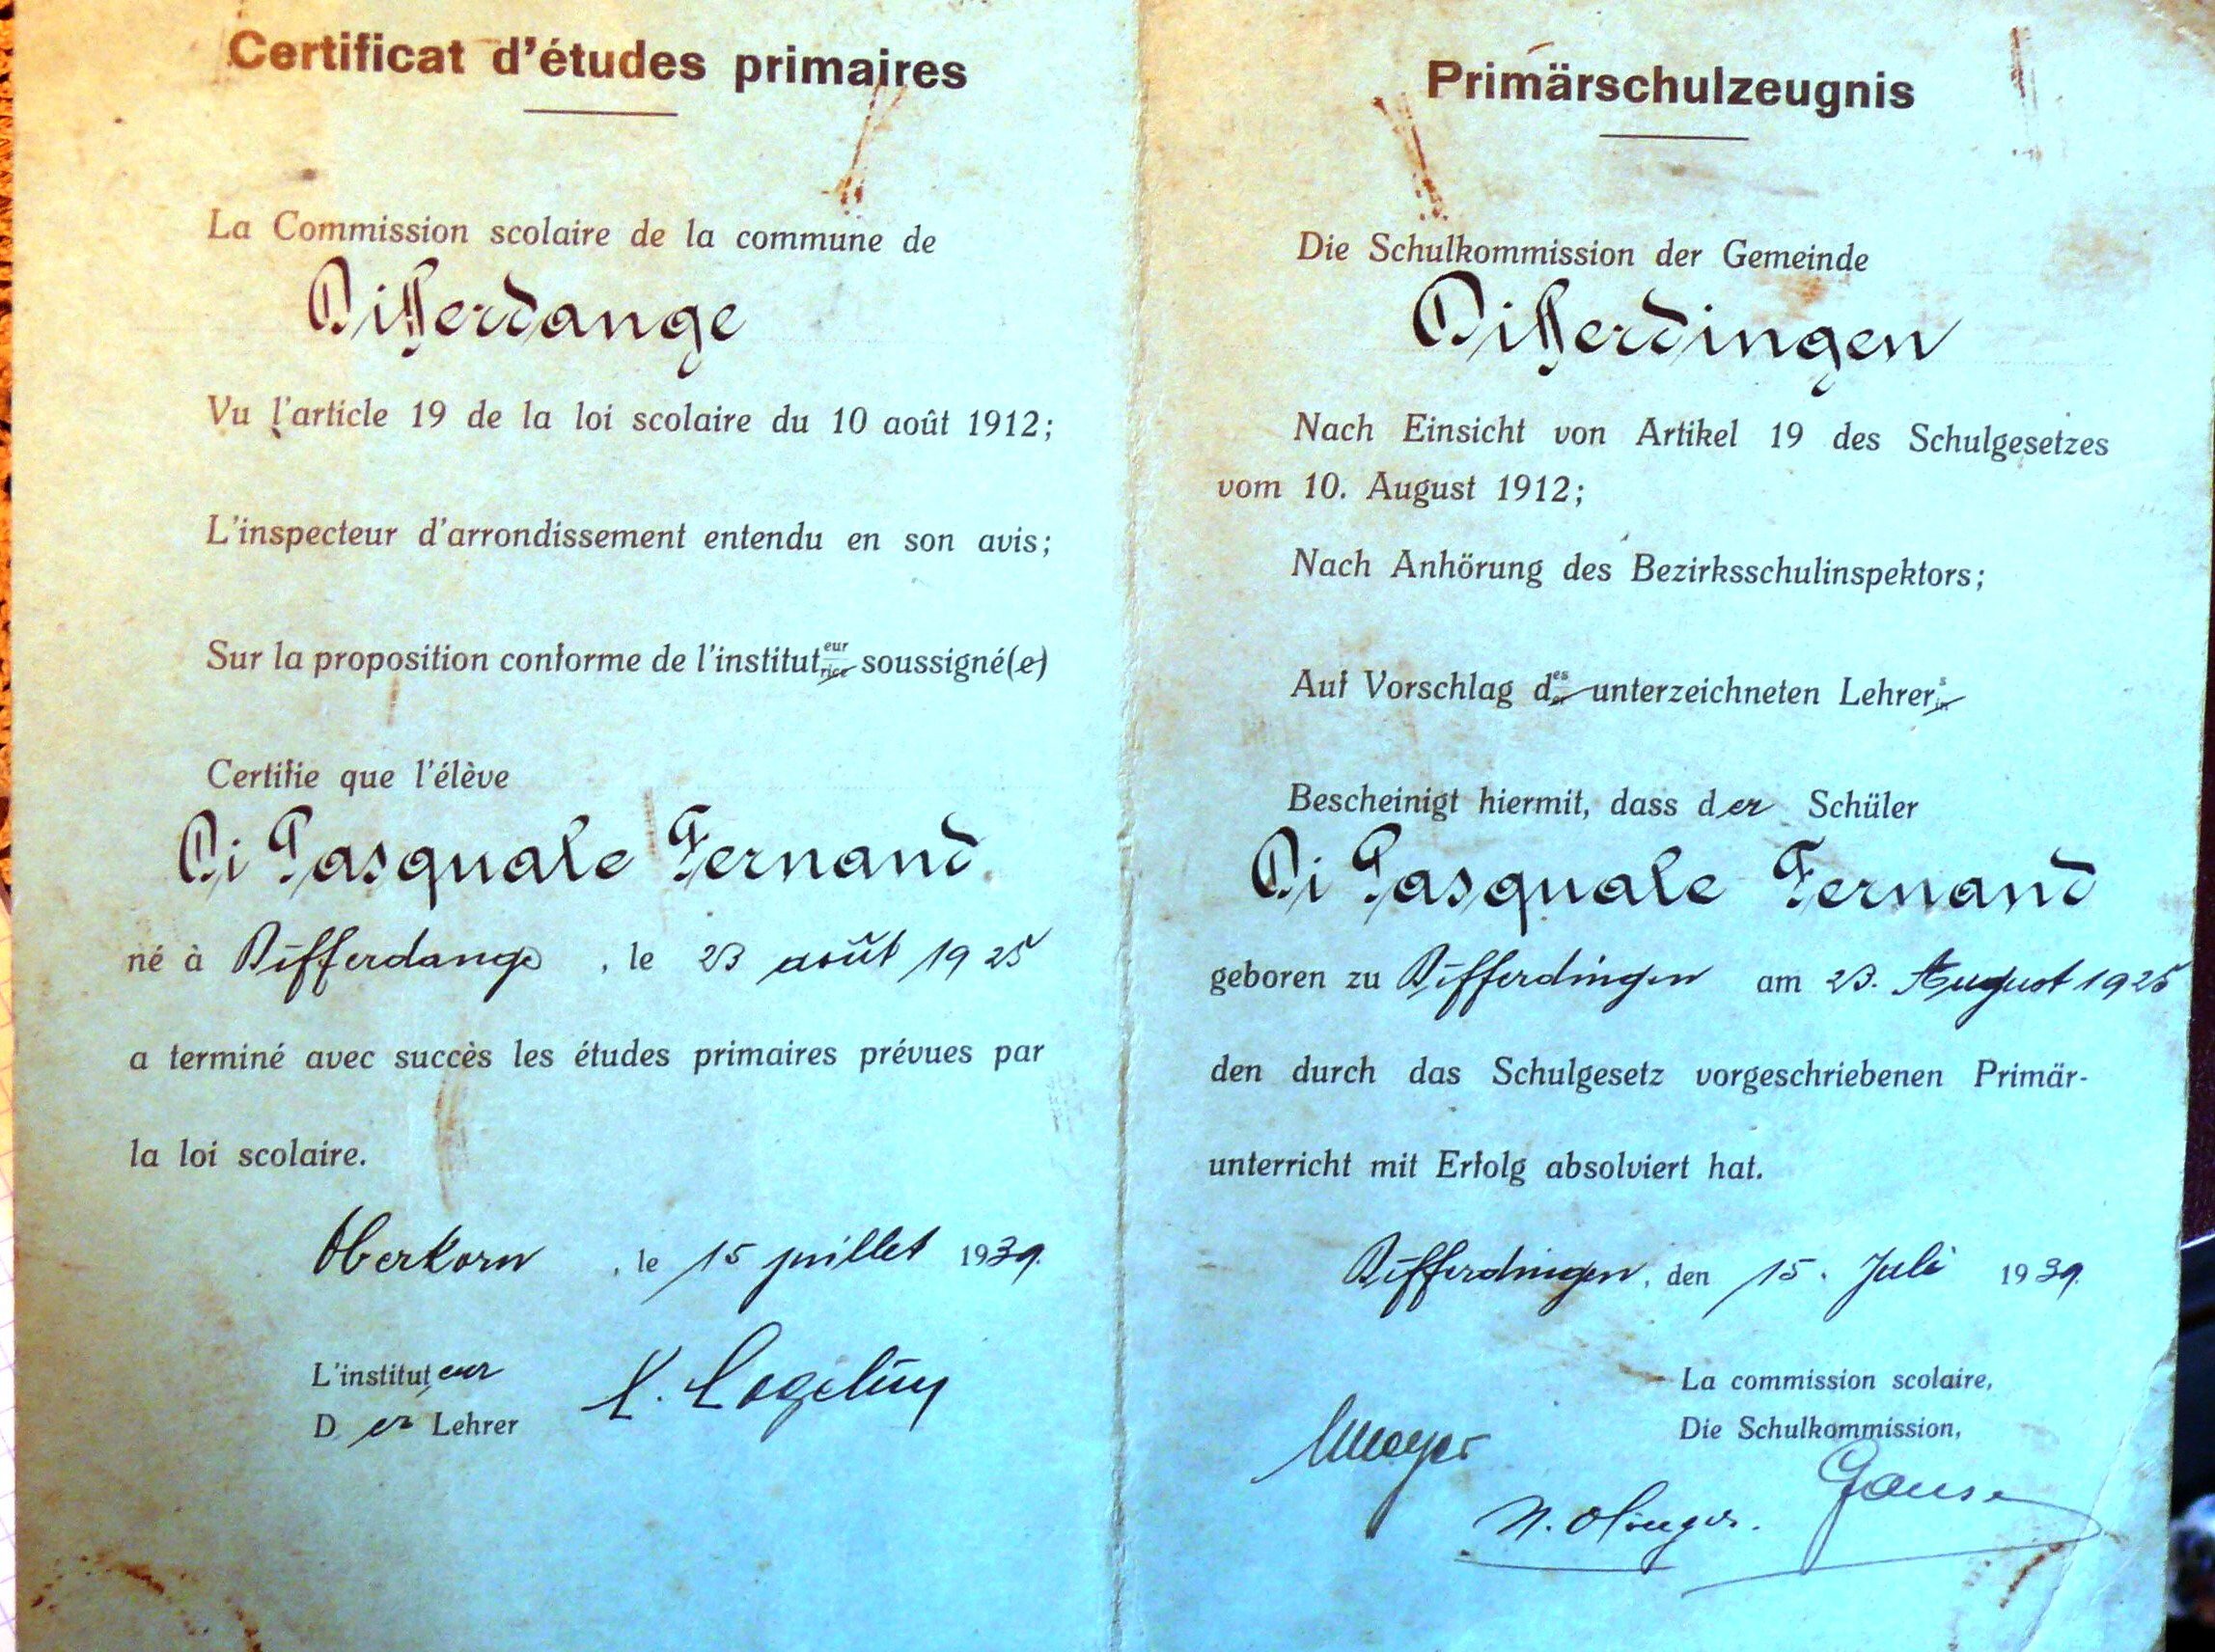 Certificat d'études primaires
La Commission scolaire de la commune de
Differdange
Vu l'article 19 de la loi scolaire du 10 août 1912;
L'inspecteur d'arrondissement entendu en son avis;
Sur la proposition conforme de l'institut eur rice soussigné(e)
Certifie que l'élève
Di Pasquale Fernand
né à Differdange, le 23 août 1925
a terminé avec succès les études primaires prévues par
la loi scolaire.
Oberkorn, le 15 juillet 1939.
L'instituteur
Der Lehrer
Primärschulzeugnis
Die Schulkommission der Gemeinde
Differdingen
Nach Einsicht von Artikel 19 des Schulgesetzes
vom 10. August 1912;
Nach Anhörung des Bezirksschulinspektors;
Auf Vorschlag d es er unterzeichneten Lehrer s in
Bescheinigt hiermit, dass der Schüler
Di Pasquale Fernand
geboren zu Differdingen am 23. August 1925
den durch das Schulgesetz vorgeschriebenen Primär-
unterricht mit Erfolg absolviert hat.
Differdingen, den 15. Juli 1939.
La commission scolaire,
Die Schulkommission,
Meyer
N. Olinger.